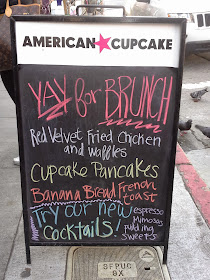 AMERICAN★CUPCAKE
YAY for BRUNCH
Red Velvet Fried Chicken
and Waffles
Cupcake Pancakes
Banana Bread French
toast
Try our new
Cocktails!
espresso
Mimosa
pudding
sweets
SFPUC